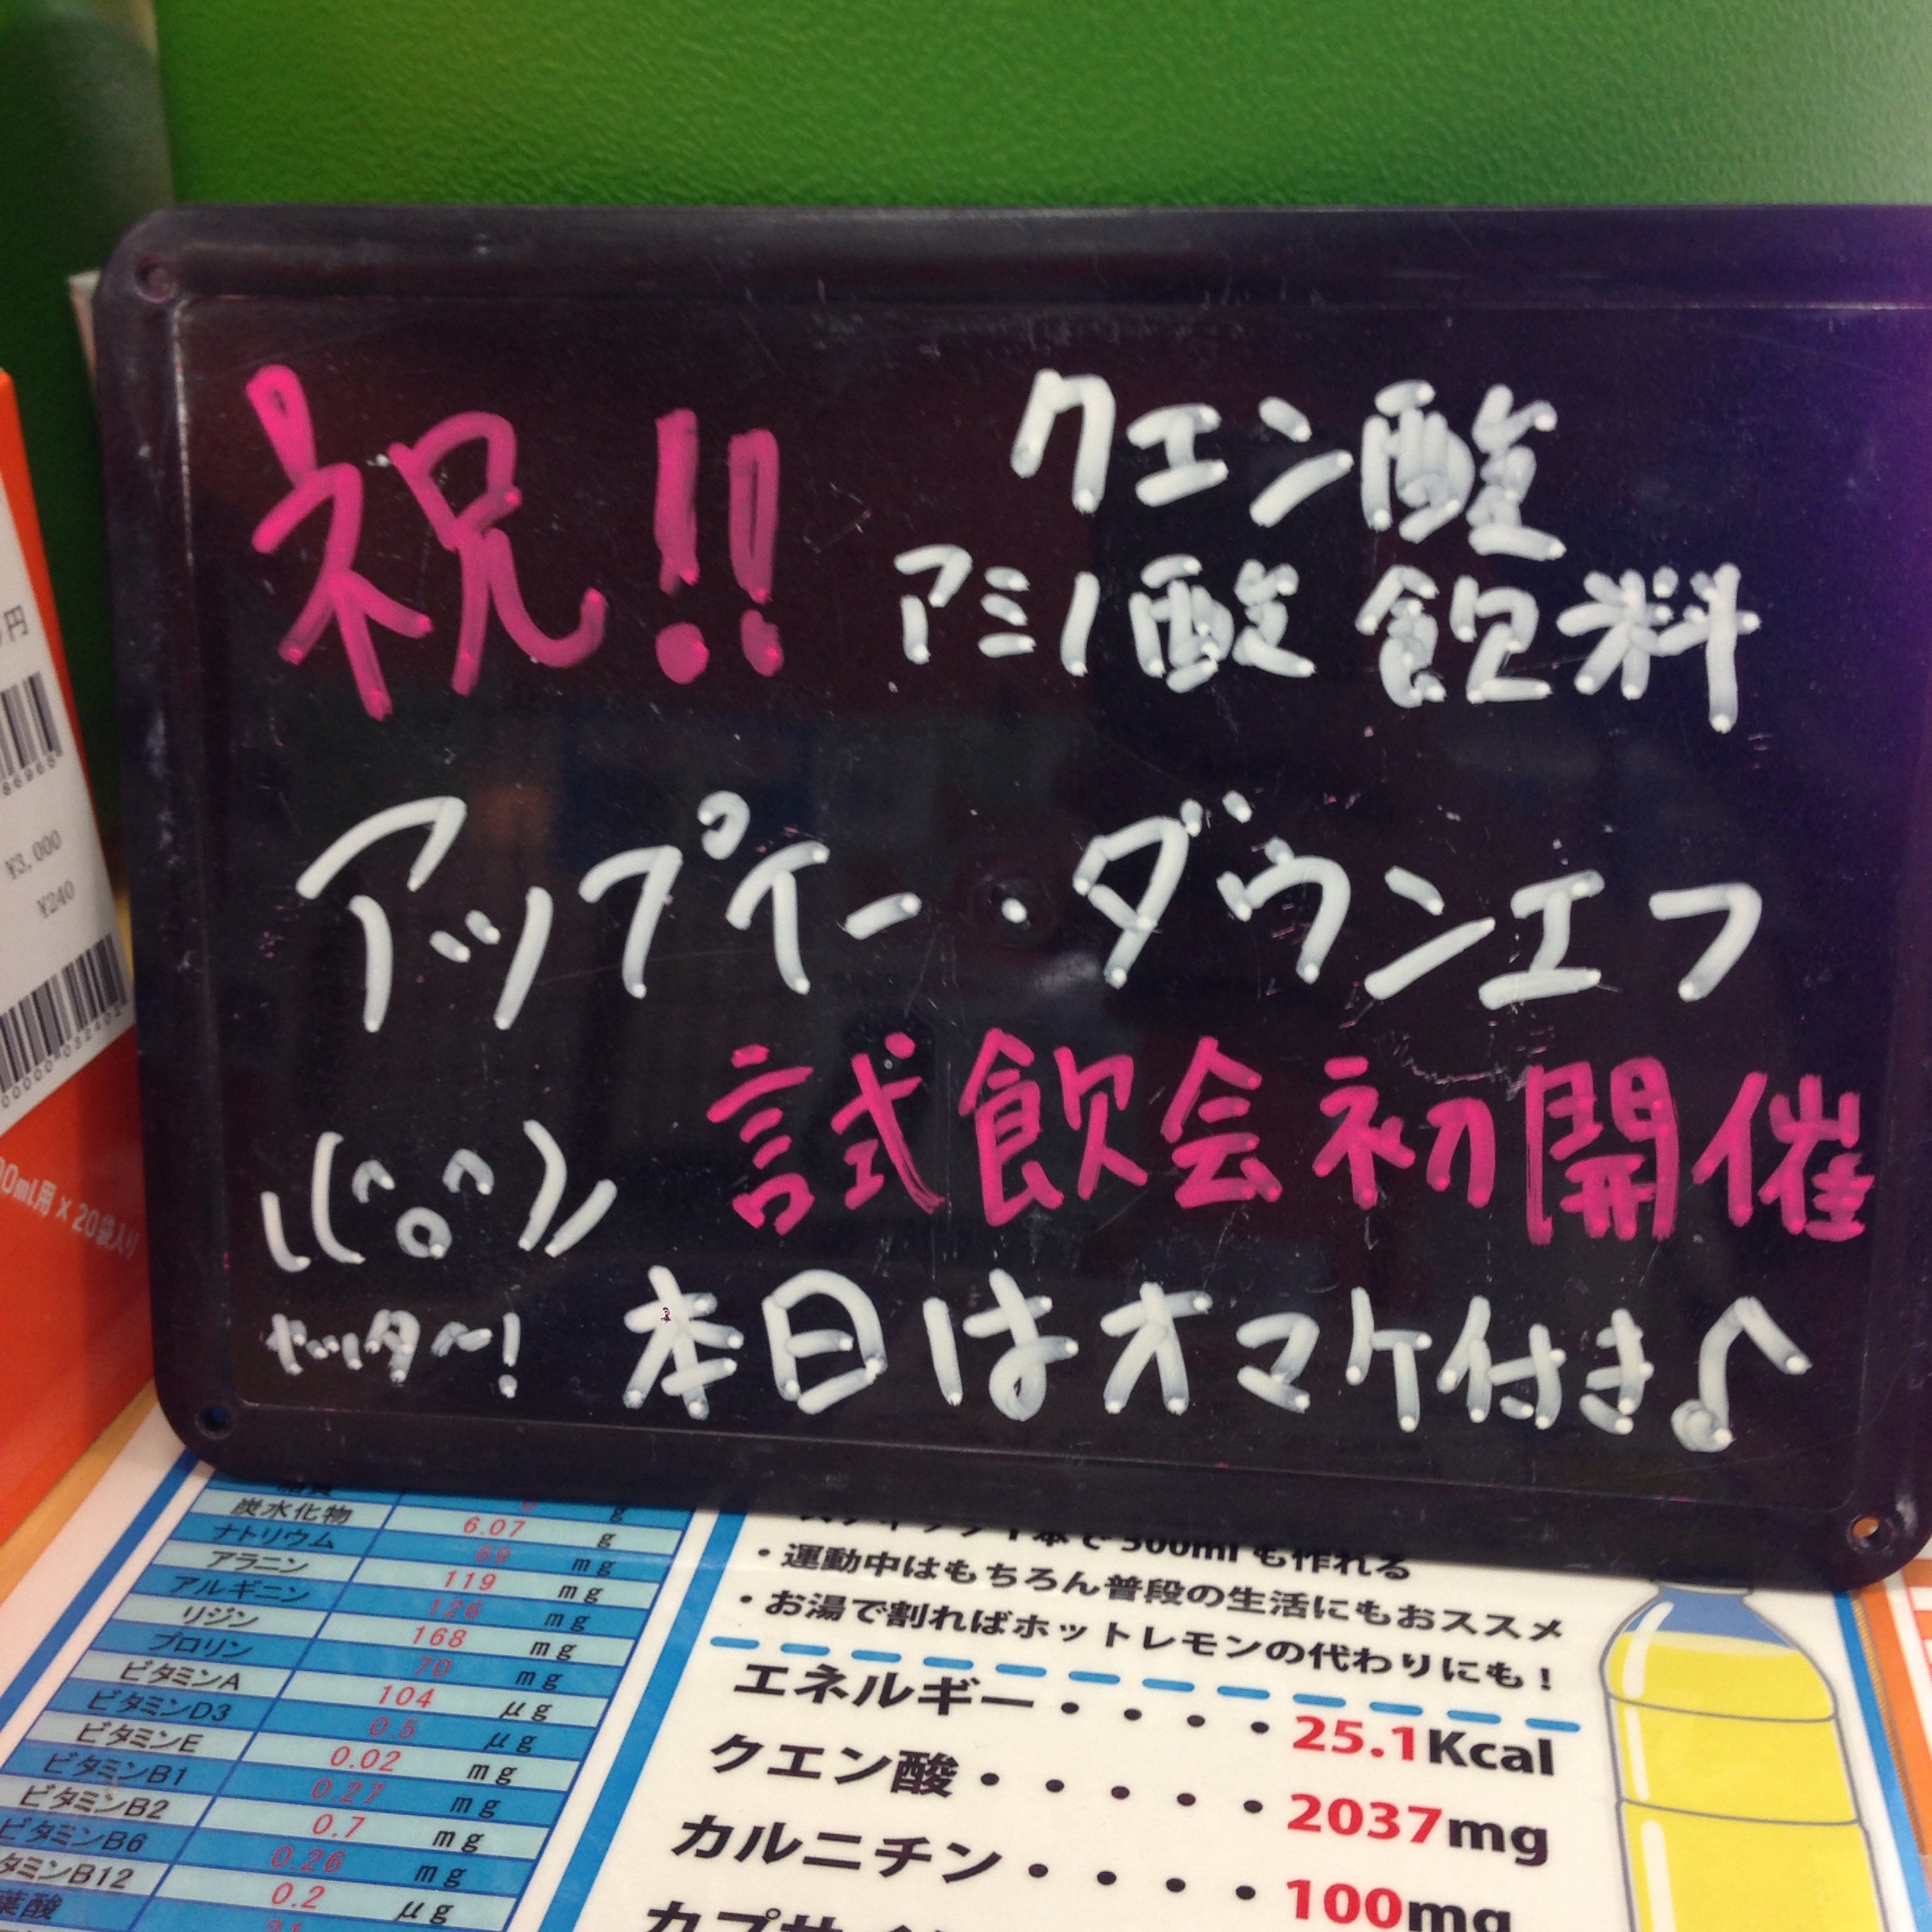 祝!!
クエン酸
アミノ酸 飲料
アップイー・ダウンエフ
試飲会初開催
\(^o^)/
ヤッター!
本日はオマケ付き♪
円
86965
¥3,000
¥240
00ml用 x 20袋入り
糖質 0 g
炭水化物 6.07 g
ナトリウム 69 mg
アラニン 119 mg
アルギニン 126 mg
リジン 168 mg
プロリン 70 mg
ビタミンA 104 μg
ビタミンD3 0.5 μg
ビタミンE 0.02 mg
ビタミンB1 0.27 mg
ビタミンB2 0.7 mg
ビタミンB6 0.26 mg
タミンB12 0.2 μg
葉酸
1本で500mlも作れる
・運動中はもちろん普段の生活にもおススメ
・お湯で割ればホットレモンの代わりにも！
エネルギー・・・・25.1Kcal
クエン酸・・・・・2037mg
カルニチン・・・・100mg